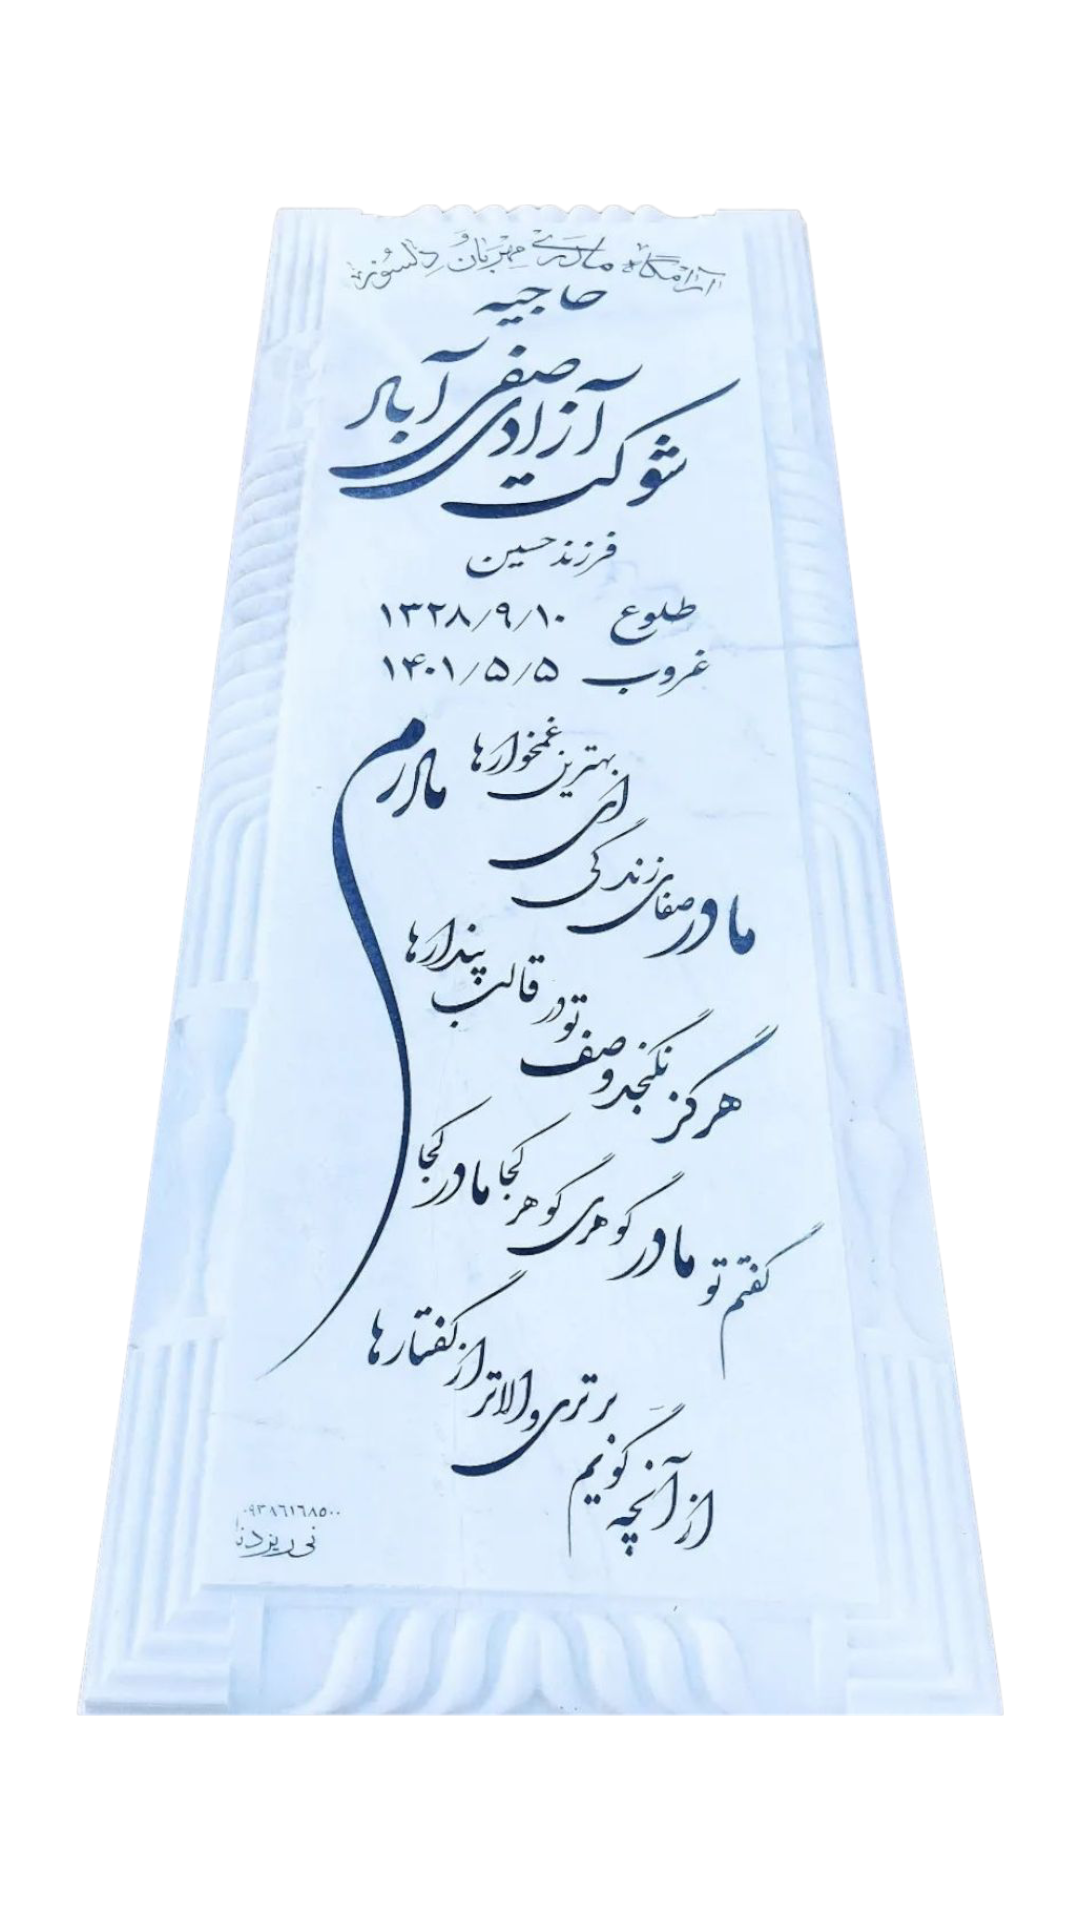 آرامگاه مادری مهربان و دلسوز
حاجیه
شوکت آزادی صفی آباد
فرزند حسین
طلوع ۱۳۲۸/۹/۱۰
غروب ۱۴۰۱/۵/۵
مادرم
مادر صفای زندگی ای بهترین غمخوارها
هرگز نگنجد وصف تو در قالب پندارها
گفتم تو مادر گوهری گوهر کجا مادر کجا
از آنچه گوئیم برتری والاتر از گفتارها
۰۹۳۸۶۱۶۸۵۰۰
نی ریز دنا